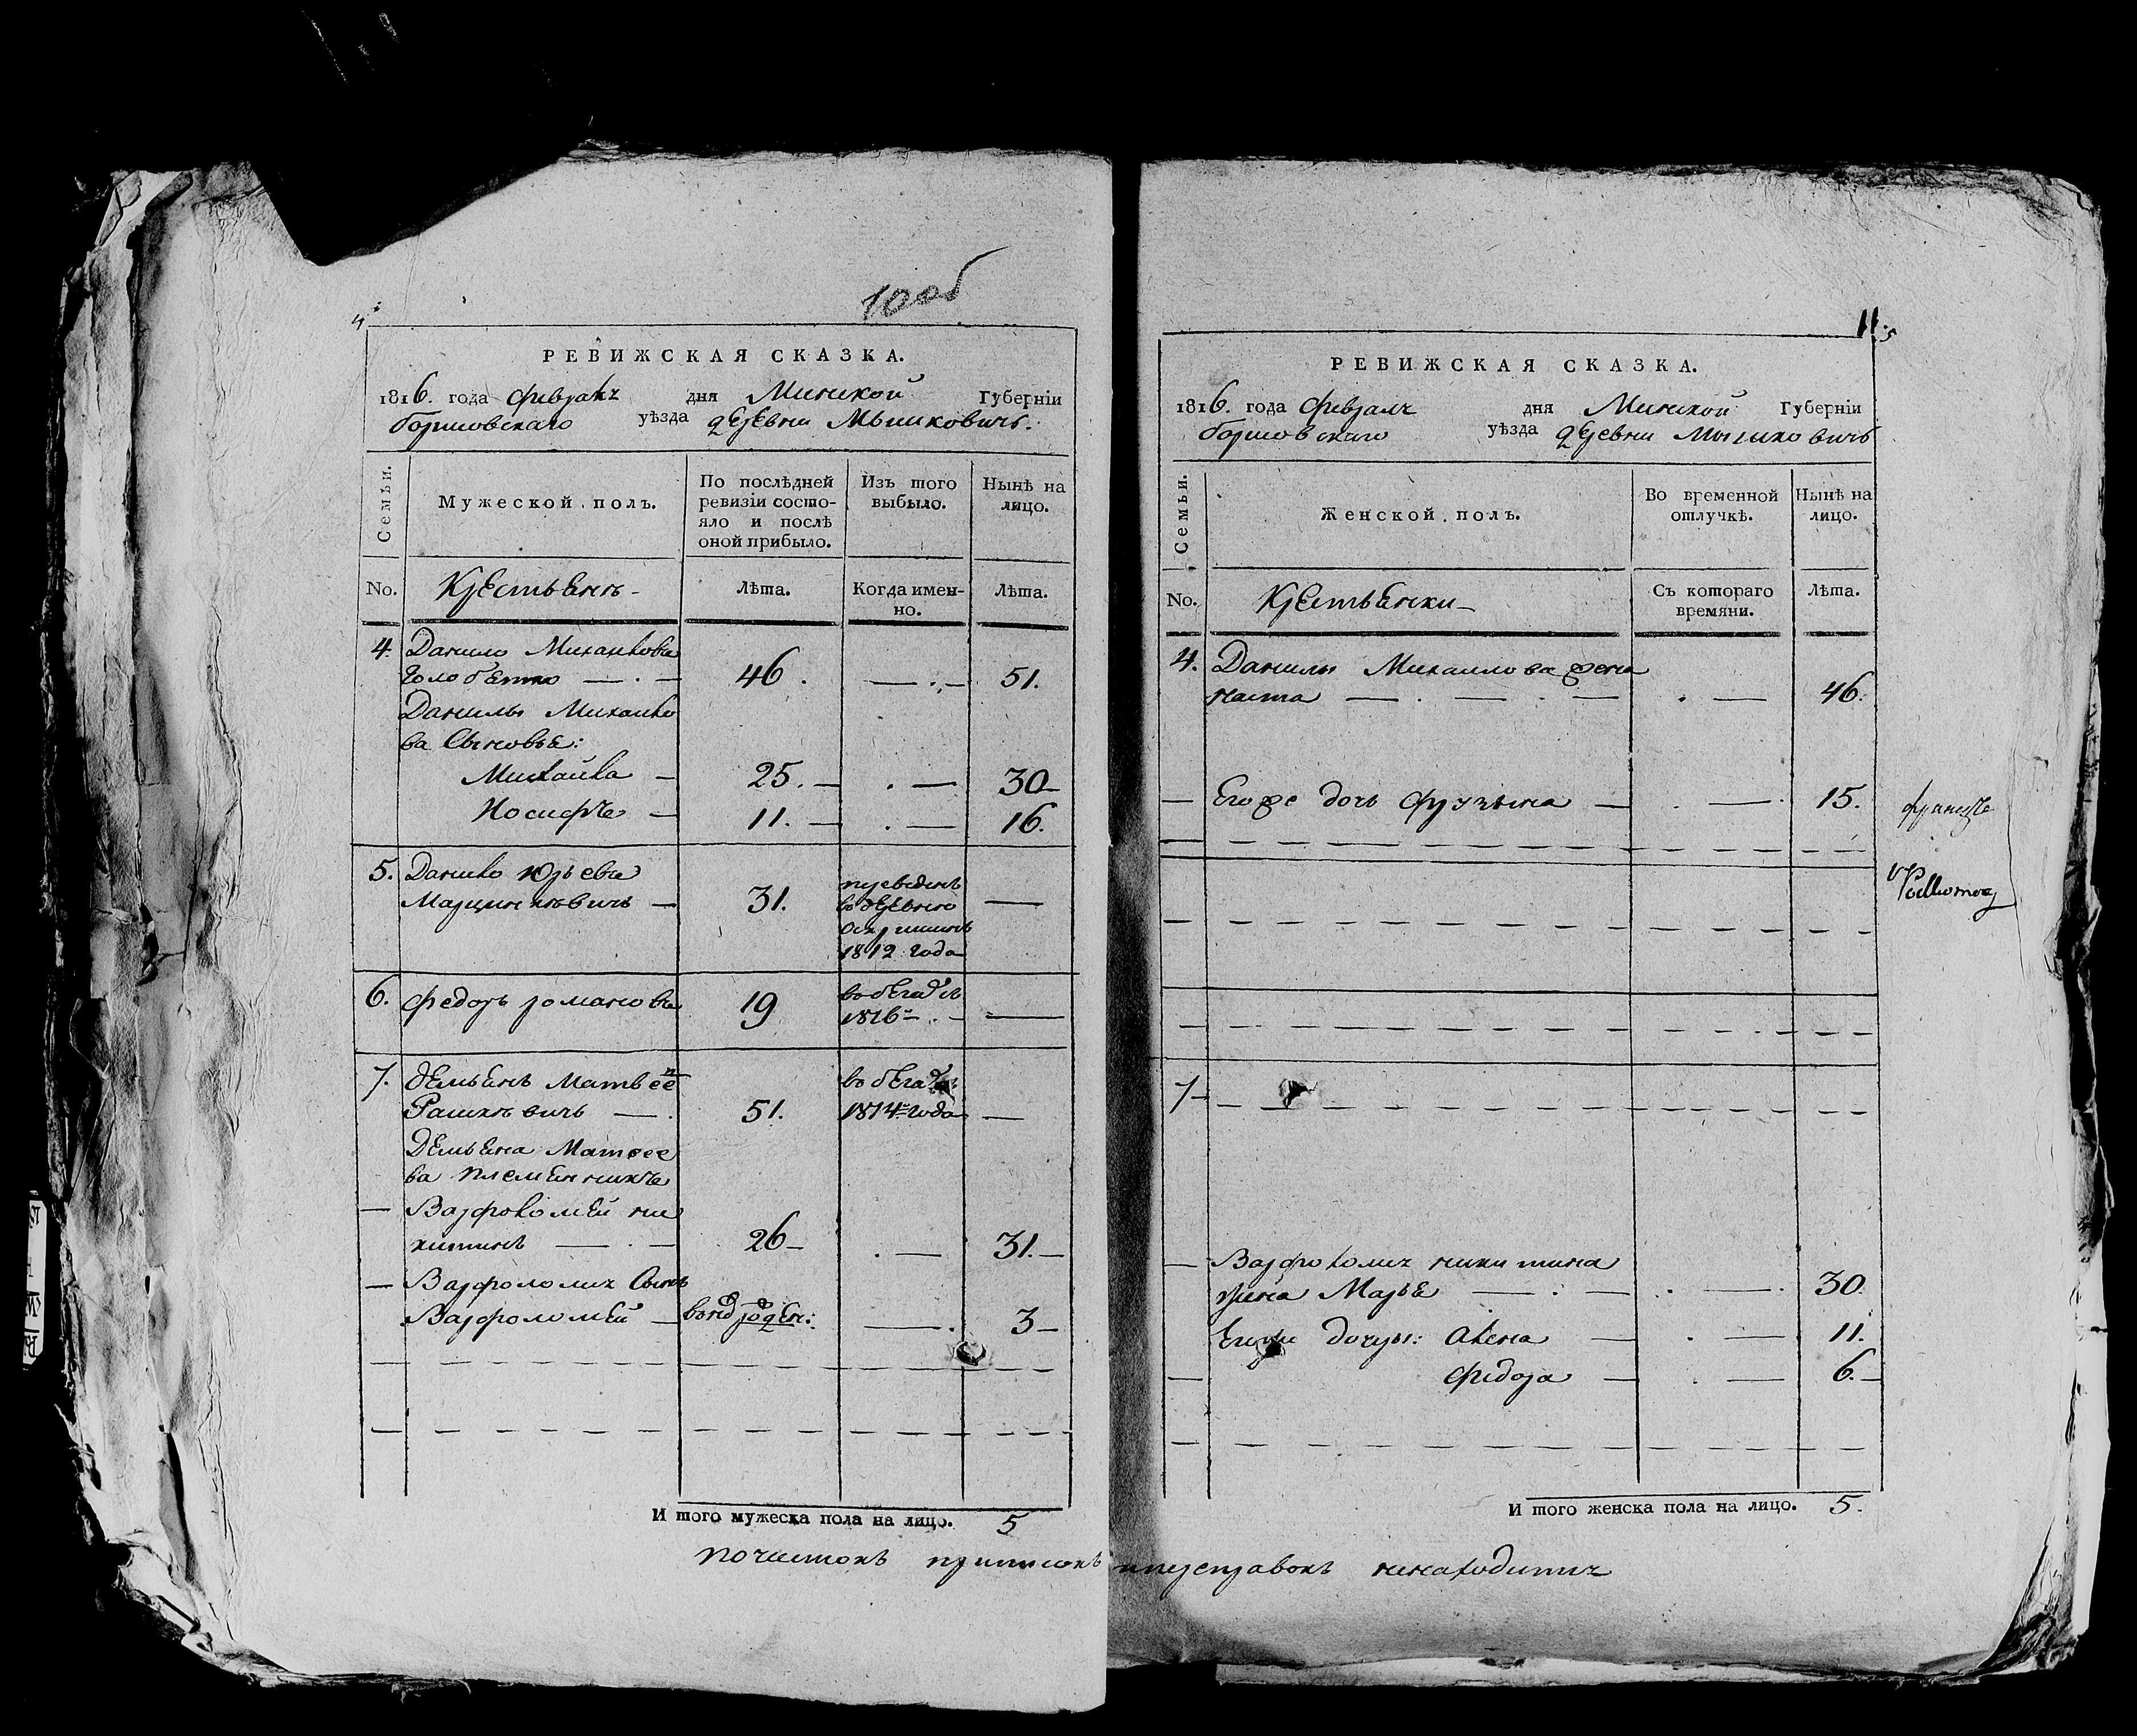 10об
4
РЕВИЖСКАЯ СКАЗКА.
1816. года февраля дня Минской Губернïи
борисовскаго уѣзда деревни Мышковичъ.
Семьи.
Мужеской полъ.
По послѣдней ревизïи состояло и послѣ оной прибыло.
Изъ того выбыло.
Нынѣ на лицо.
No.
Крестьенъ
Лѣта.
Когда именно.
Лѣта.
4. Данило Михайлове
46. 51.
Данилы Михайло
ва Сыновье:
Михайла 25. 30
Иосифъ 11. 16.
5. Данило Юрьеве
Марцинкѣвичъ 31. переведенъ
в деревню
1812 года
6. Федоръ романове 19 в бегахъ
1816
7. демьенъ Матвее
Рашкевичъ 51. в бегахъ
1814 года
Демьена Матвее
ва племенникъ
Варфоломей ни
китинъ 26 31.
Варфоломея Сынъ
Варфоломей рожден: 3
И того мужеска пола на лицо. 5
11. 5
РЕВИЖСКАЯ СКАЗКА.
1816. года февраля дня Минской Губернïи
борисовскаго уѣзда деревни Мышковичъ
Семьи.
Женской полъ.
Во временной отлучкѣ.
Нынѣ на лицо.
No.
Крестьенки
Съ котораго времяни.
Лѣта.
4. Данилы Михаилова жена
наста 46.
Егоже дочь Фрузына 15.
7
Варфоломея никитина
жена Марье 30.
Егоже дочери: Алена 11.
Федора 6.
И того женска пола на лицо. 5.
почистокъ приписокъ ипереправокъ ненаходитца